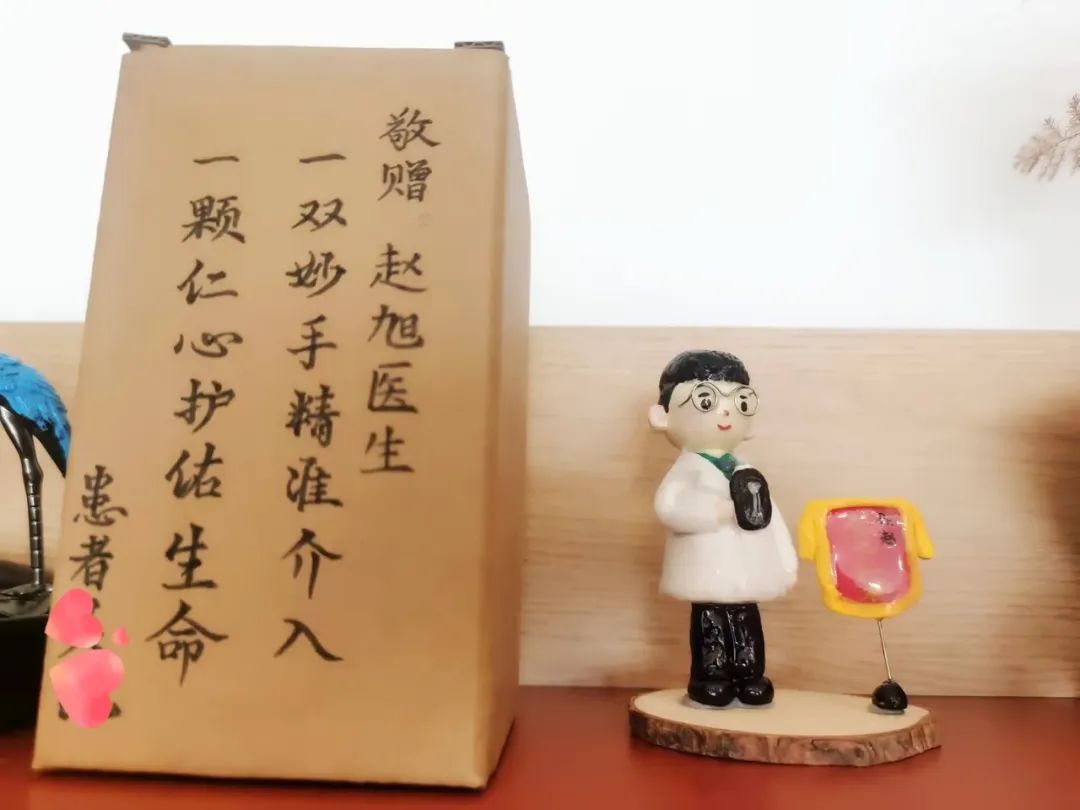 敬赠 赵旭医生
一双妙手精准介入
一颗仁心护佑生命
患者